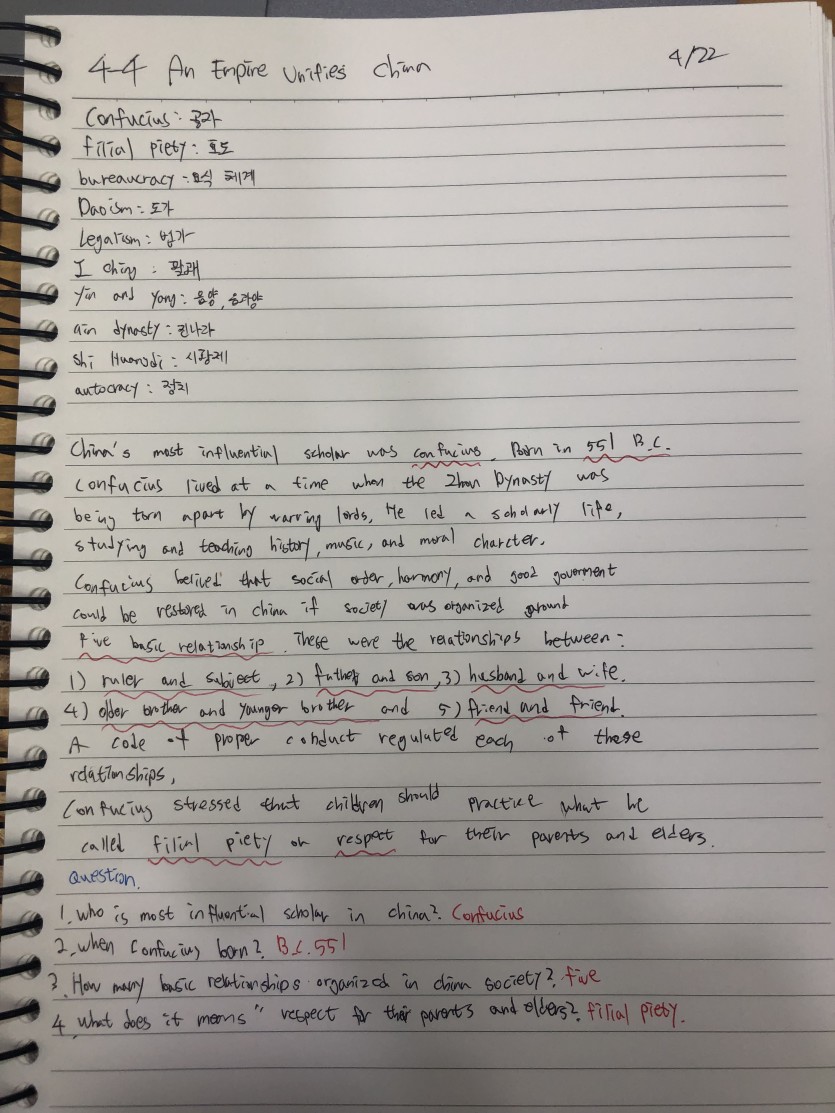 4-4 An Empire Unifies China 4/22
Confucius : 공자
filial piety : 효도
bureaucracy : 요식 체계
Daoism : 도가
Legarism : 법가
I Ching : 팔괘
Yin and Yong : 음양, 음과양
ain dynasty : 진나라
Shi Huangdi : 시황제
autocracy : 정치
China's most influential scholar was confucius. Born in 551 B.C.
Confucius lived at a time when the Zhou Dynasty was
being torn apart by warring lords, He led a scholarly life,
studying and teaching history, music, and moral charcter.
Confucius belived that social order, harmony, and good goverment
could be restored in china if society was organized ground
five basic relationship. These were the relationships between :
1) ruler and subject, 2) father and son, 3) husband and wife.
4) older brother and younger brother and 5) friend and friend.
A code of proper conduct regulated each of these
relationships,
Confucing stressed that children should practice what he
called filial piety or respect for their parents and elders.
Question.
1. Who is most influential scholar in china? Confucius
2. when Confucius born? B.C. 551
3. How many basic relationships organized in china society? five
4. What does it means " respect for their parents and elders? filial piety.